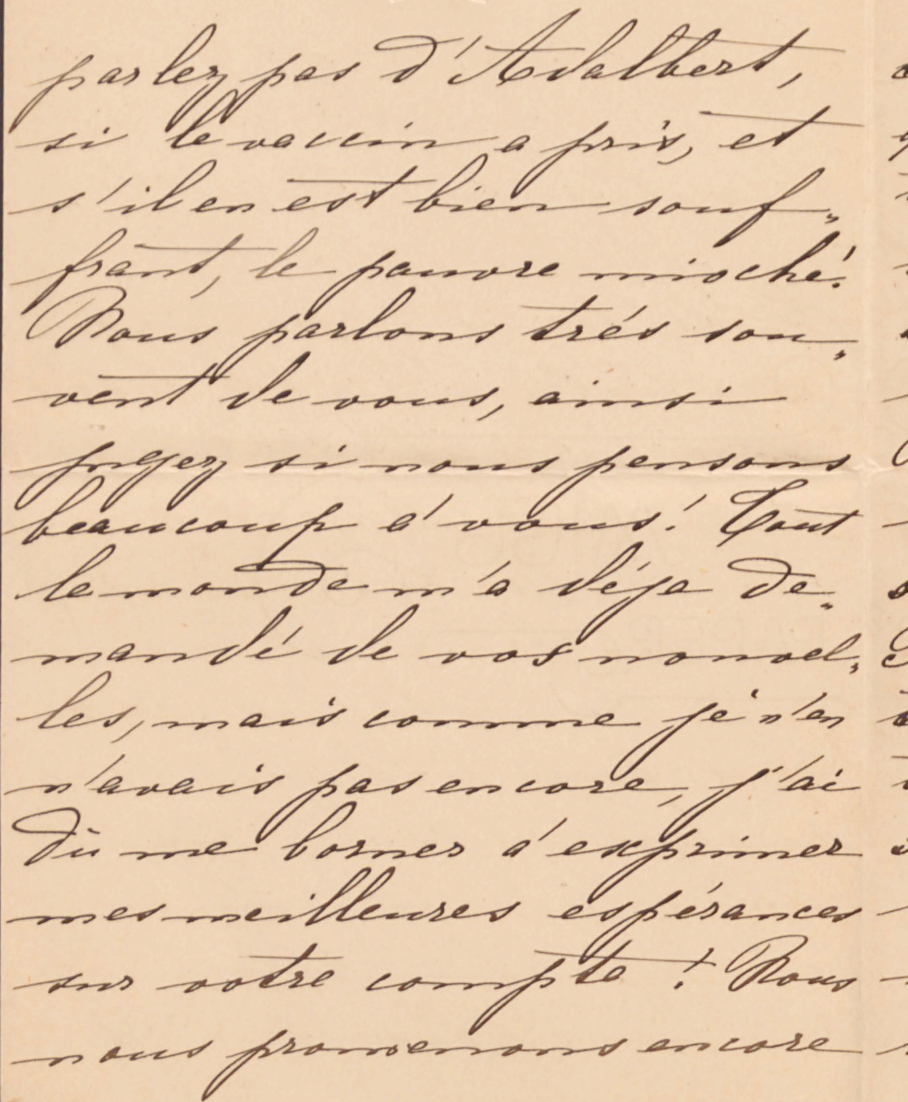 parlez pas d'Adalbert,
si le vaccin a pris, et
s'il en est bien souf„
frant, le pauvre mioché!
Nous parlons trés sou„
vent de vous, ainsi
jugez si nous pensons
beaucoup á vous! Tout
le monde m'a déja de„
mandé de vos nouvel„
les, mais comme je n'en
n'avais pas encore, j'ai
dù me borner á exprimer
mes meilleures espérances
sur votre compte! Nous
nous promenons encore